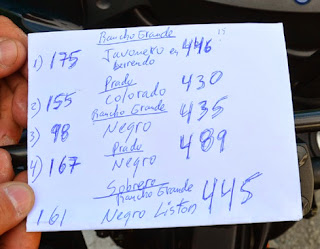 Rancho Grande
1) 175 Javonero en 446
berrendo
Prado
2) 155 Colorado 430
Rancho Grande
3) 98 Negro 435
Prado
4) 167 Negro 489
Sobrero
Rancho Grande
161 Negro Liston 445